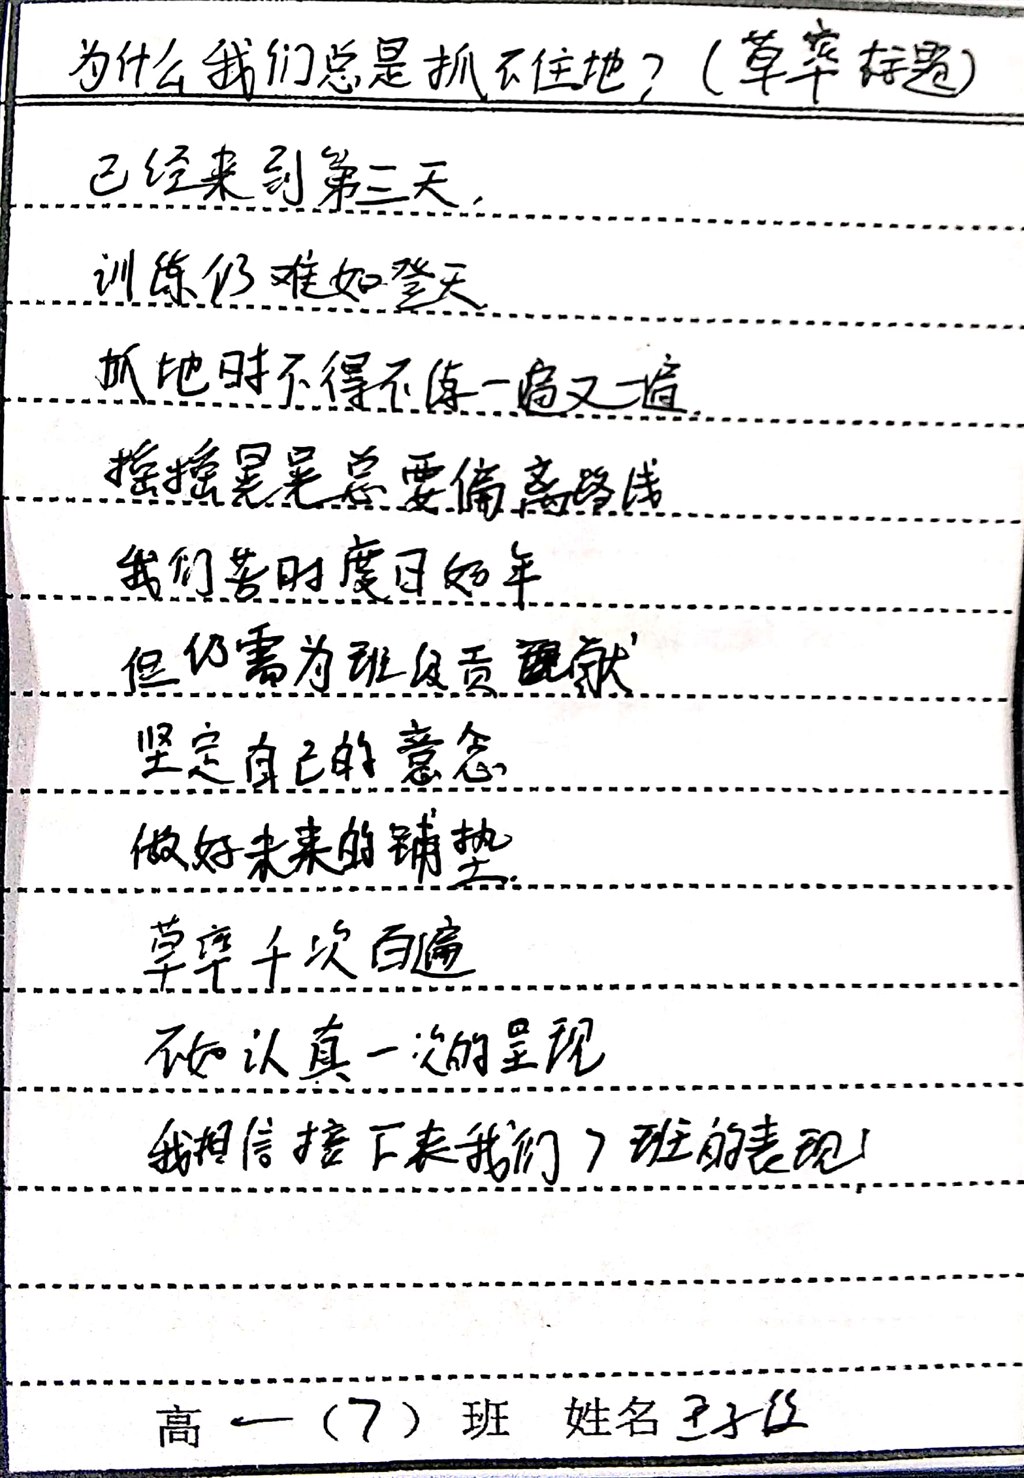 为什么我们总是抓不住地?(草率标题)
已经来到第三天,
训练仍难如登天.
抓地时不得不练一遍又一遍.
摇摇晃晃总要偏离路线
我们苦时度日如年
但仍需为班级贡献
坚定自己的意念
做好未来的铺垫.
草率千次百遍
不如认真一次的呈现
我相信接下来我们7班的表现!
高一(7)班 姓名 王子